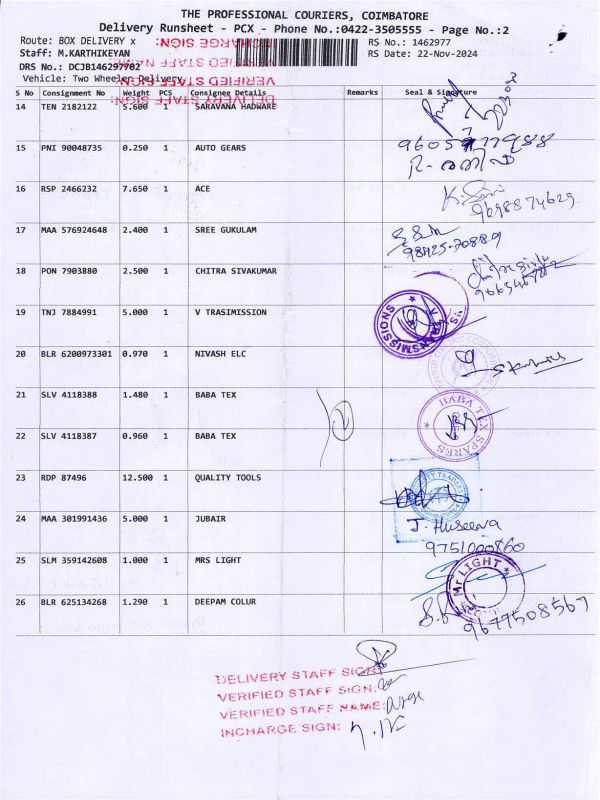 THE PROFESSIONAL COURIERS, COIMBATORE
Delivery Runsheet - PCX - Phone No.:0422-3505555 - Page No.:2
Route: BOX DELIVERY x RS No.: 1462977
Staff: M.KARTHIKEYAN RS Date: 22-Nov-2024
DRS No.: DCJB146297702
Vehicle: Two Wheeler Delivery
S No Consignment No Weight PCS Consignee Details Remarks Seal & Signature
14 TEN 2182122 5.600 1 SARAVANA HADWARE
15 PNI 90048735 0.250 1 AUTO GEARS
16 RSP 2466232 7.650 1 ACE
9698874629
17 MAA 576924648 2.400 1 SREE GUKULAM
98425-70889
18 PON 7903880 2.500 1 CHITRA SIVAKUMAR
19 TNJ 7884991 5.000 1 V TRASIMISSION
20 BLR 6200973301 0.970 1 NIVASH ELC
21 SLV 4118388 1.480 1 BABA TEX
BABA TEX SPARES
22 SLV 4118387 0.960 1 BABA TEX
23 RDP 87496 12.500 1 QUALITY TOOLS
24 MAA 301991436 5.000 1 JUBAIR
J. Huseena
9751000860
25 SLM 359142608 1.000 1 MRS LIGHT
Mr LIGHT
26 BLR 625134268 1.290 1 DEEPAM COLUR
9677508567
DELIVERY STAFF SIGN:
VERIFIED STAFF SIGN:
VERIFIED STAFF NAME:
INCHARGE SIGN: